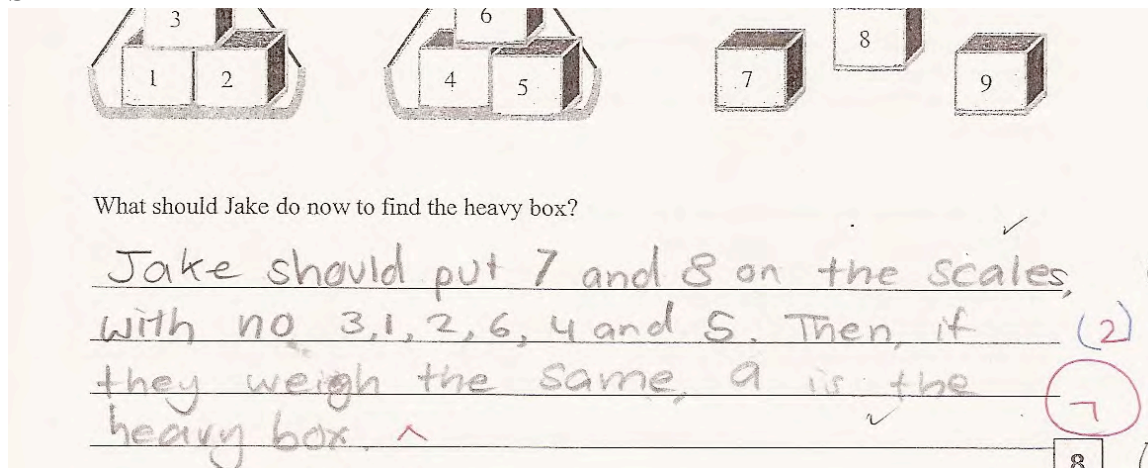 3
6
8
1
2
4
5
7
9
What should Jake do now to find the heavy box?
Jake should put 7 and 8 on the scales,
with no 3,1,2,6,4 and 5. Then, if
(2)
they weigh the same, 9 is the
7
heavy box. ^
8